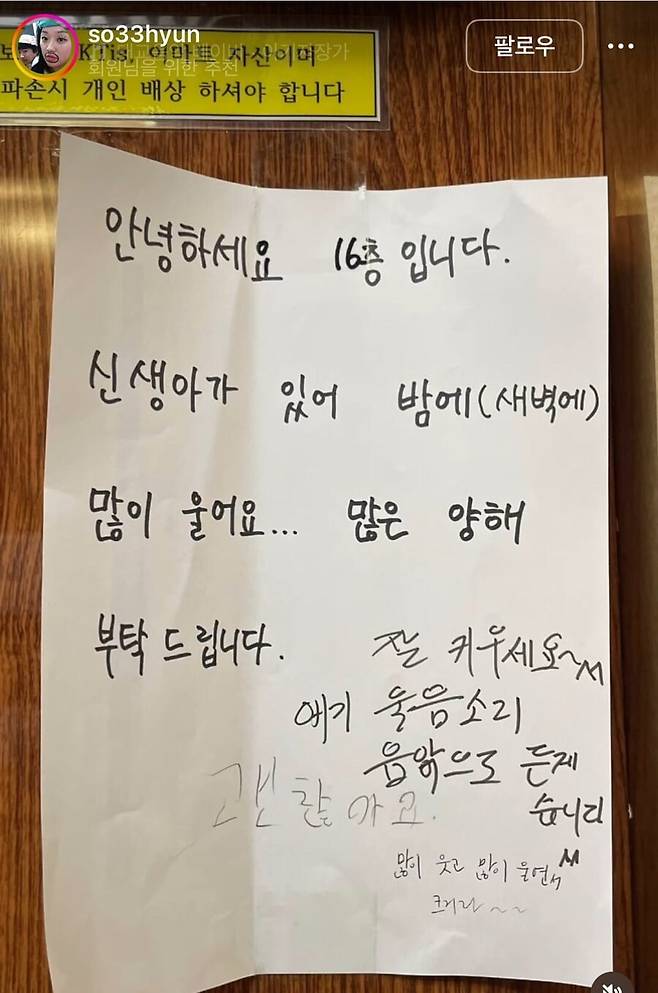 so33hyun
팔로우
회원님을 위한 추천
KTis, 이마트 자산이며
파손시 개인 배상 하셔야 합니다
안녕하세요 16층 입니다.
신생아가 있어 밤에(새벽에)
많이 울어요... 많은 양해
부탁 드립니다.
잘 키우세요~^^
애기 울음소리
음악으로 듣게
습니다
괜찮아요.
많이 웃고 많이 울면서 ^^
크거라~~